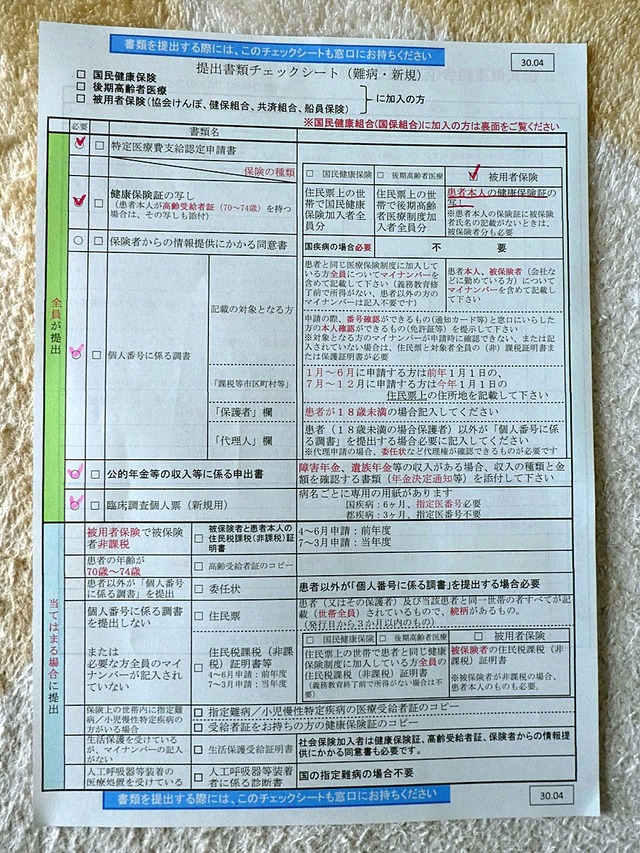 書類を提出する際には、このチェックシートも窓口にお持ちください
30.04
提出書類チェックシート（難病・新規）
□ 国民健康保険
□ 後期高齢者医療
□ 被用者保険（協会けんぽ、健保組合、共済組合、船員保険）
に加入の方
※国民健康組合(国保組合)に加入の方は裏面をご覧ください
必要
書類名
全員が提出
□ 特定医療費支給認定申請書
保険の種類
□ 国民健康保険
□ 後期高齢者医療
□ 被用者保険
□ 健康保険証の写し
（患者本人が高齢受給者証（70～74歳）を持つ
場合は、その写しも添付）
住民票上の世
帯で国民健康
保険加入者全
員分
住民票上の世
帯で後期高齢
者医療制度加
入者全員分
患者本人の健康保険証の
写し
※患者本人の保険証に被保険
者氏名の記載がないときは、
被保険者分も必要
○ □ 保険者からの情報提供にかかる同意書
国疾病の場合必要
不 要
□ 個人番号に係る調書
記載の対象となる方
患者と同じ医療保険制度に加入して
いる方全員についてマイナンバーを
含めて記載して下さい（義務教育修
了前で所得がない、患者以外の方の
マイナンバーは記入不要です）
患者本人、被保険者（会社な
どに勤めている方）について
マイナンバーを含めて記載し
て下さい
申請の際、番号確認ができるもの(通知カード等)と窓口にいらした
方の本人確認ができるもの(免許証等）を提示して下さい
※対象となる方のマイナンバーが申請時に確認できない、または記
入されていない場合は、住民票と対象者全員の（非）課税証明書ま
たは保護証明書が必要
「課税等市区町村等」
1月～6月に申請する方は前年1月1日の、
7月～12月に申請する方は今年1月1日の
住民票上の住所地を記載して下さい
「保護者」欄
患者が18歳未満の場合記入してください
「代理人」欄
患者（18歳未満の場合保護者）以外が「個人番号に係
る調書」を提出する場合必要に記入してください
※代理申請の場合、委任状など代理権が確認できるものが必要です
□ 公的年金等の収入等に係る申出書
障害年金、遺族年金等の収入がある場合、収入の種類と金
額を確認する書類（年金決定通知等）を添付して下さい
□ 臨床調査個人票（新規用）
病名ごとに専用の用紙があります
国疾病：6ヶ月、指定医番号必要
都疾病：3ヶ月、指定医番号不要
当てはまる場合に提出
被用者保険で被保険
者非課税
□ 被保険者と患者本人の
住民税課税(非課税)証
明書
4～6月申請：前年度
7～3月申請：当年度
患者の年齢が
70歳～74歳
□ 高齢受給者証のコピー
患者以外が「個人番号
に係る調書」を提出
□ 委任状
患者以外が「個人番号に係る調書」を提出する場合必要
個人番号に係る調書
を提出しない
または
必要な方全員のマイ
ナンバーが記入され
ていない
□ 住民票
患者（又はその保護者）及び当該患者と同一世帯の者すべてが記
載（世帯全員）されているもので、続柄があるもの。
（発行日から3か月以内のもの）
□ 住民税課税（非課
税）証明書等
4～6月申請：前年度
7～3月申請：当年度
□ 国民健康保険
□ 後期高齢者医療
□ 被用者保険
住民票上の世帯で患者と同じ健康
保険制度に加入している方全員の
住民税課税（非課税）証明書
（義務教育終了前で所得がない場合は不
要）
被保険者の住民税課税（非課
税）証明書
※被保険者が非課税の場合、
患者本人のものも必要。
保険上の世帯内に指定難
病/小児慢性特定疾病の
方がいる場合
□ 指定難病/小児慢性特定疾病の医療受給者証のコピー
□ 受給者証をお持ちの方の健康保険証のコピー
生活保護を受けている
が、マイナンバーの記入
がない
□ 生活保護受給証明書
社会保険加入者は健康保険証、高齢受給者証、保険者からの情報提
供にかかる同意書も必要です。
人工呼吸器等装着の
医療処置を受けている
□ 人工呼吸器等装着
者に係る診断書
国の指定難病の場合不要
書類を提出する際には、このチェックシートも窓口にお持ちください
30.04